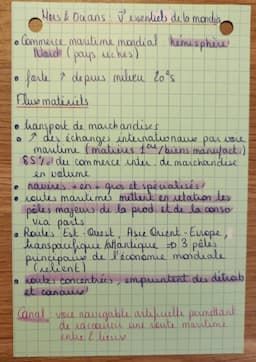 Mers & Océans : V essentiels de la mondia
• Commerce maritime mondial hémisphère
Nord (pays riches)
• forte ↗ depuis milieu 20es
Flux matériels
• transport de marchandises
• ↗ des échanges internationaux par voie
maritime (matières 1ères/biens manufact.)
85% du commerce inter. de marchandise
en volume
• navires + en + gros et spécialisés
• routes maritimes mettent en relation les
pôles majeurs de la prod. et de la conso
via ports
• Routes Est-Ouest, Asie Orient-Europe,
transpacifique/Atlantique => 3 pôles
principaux de l'économie mondiale
(relient)
• routes concentrées, empruntent des détroits
et canaux
Canal : voie navigable artificielle permettant
de raccourcir une route maritime
entre 2 lieux